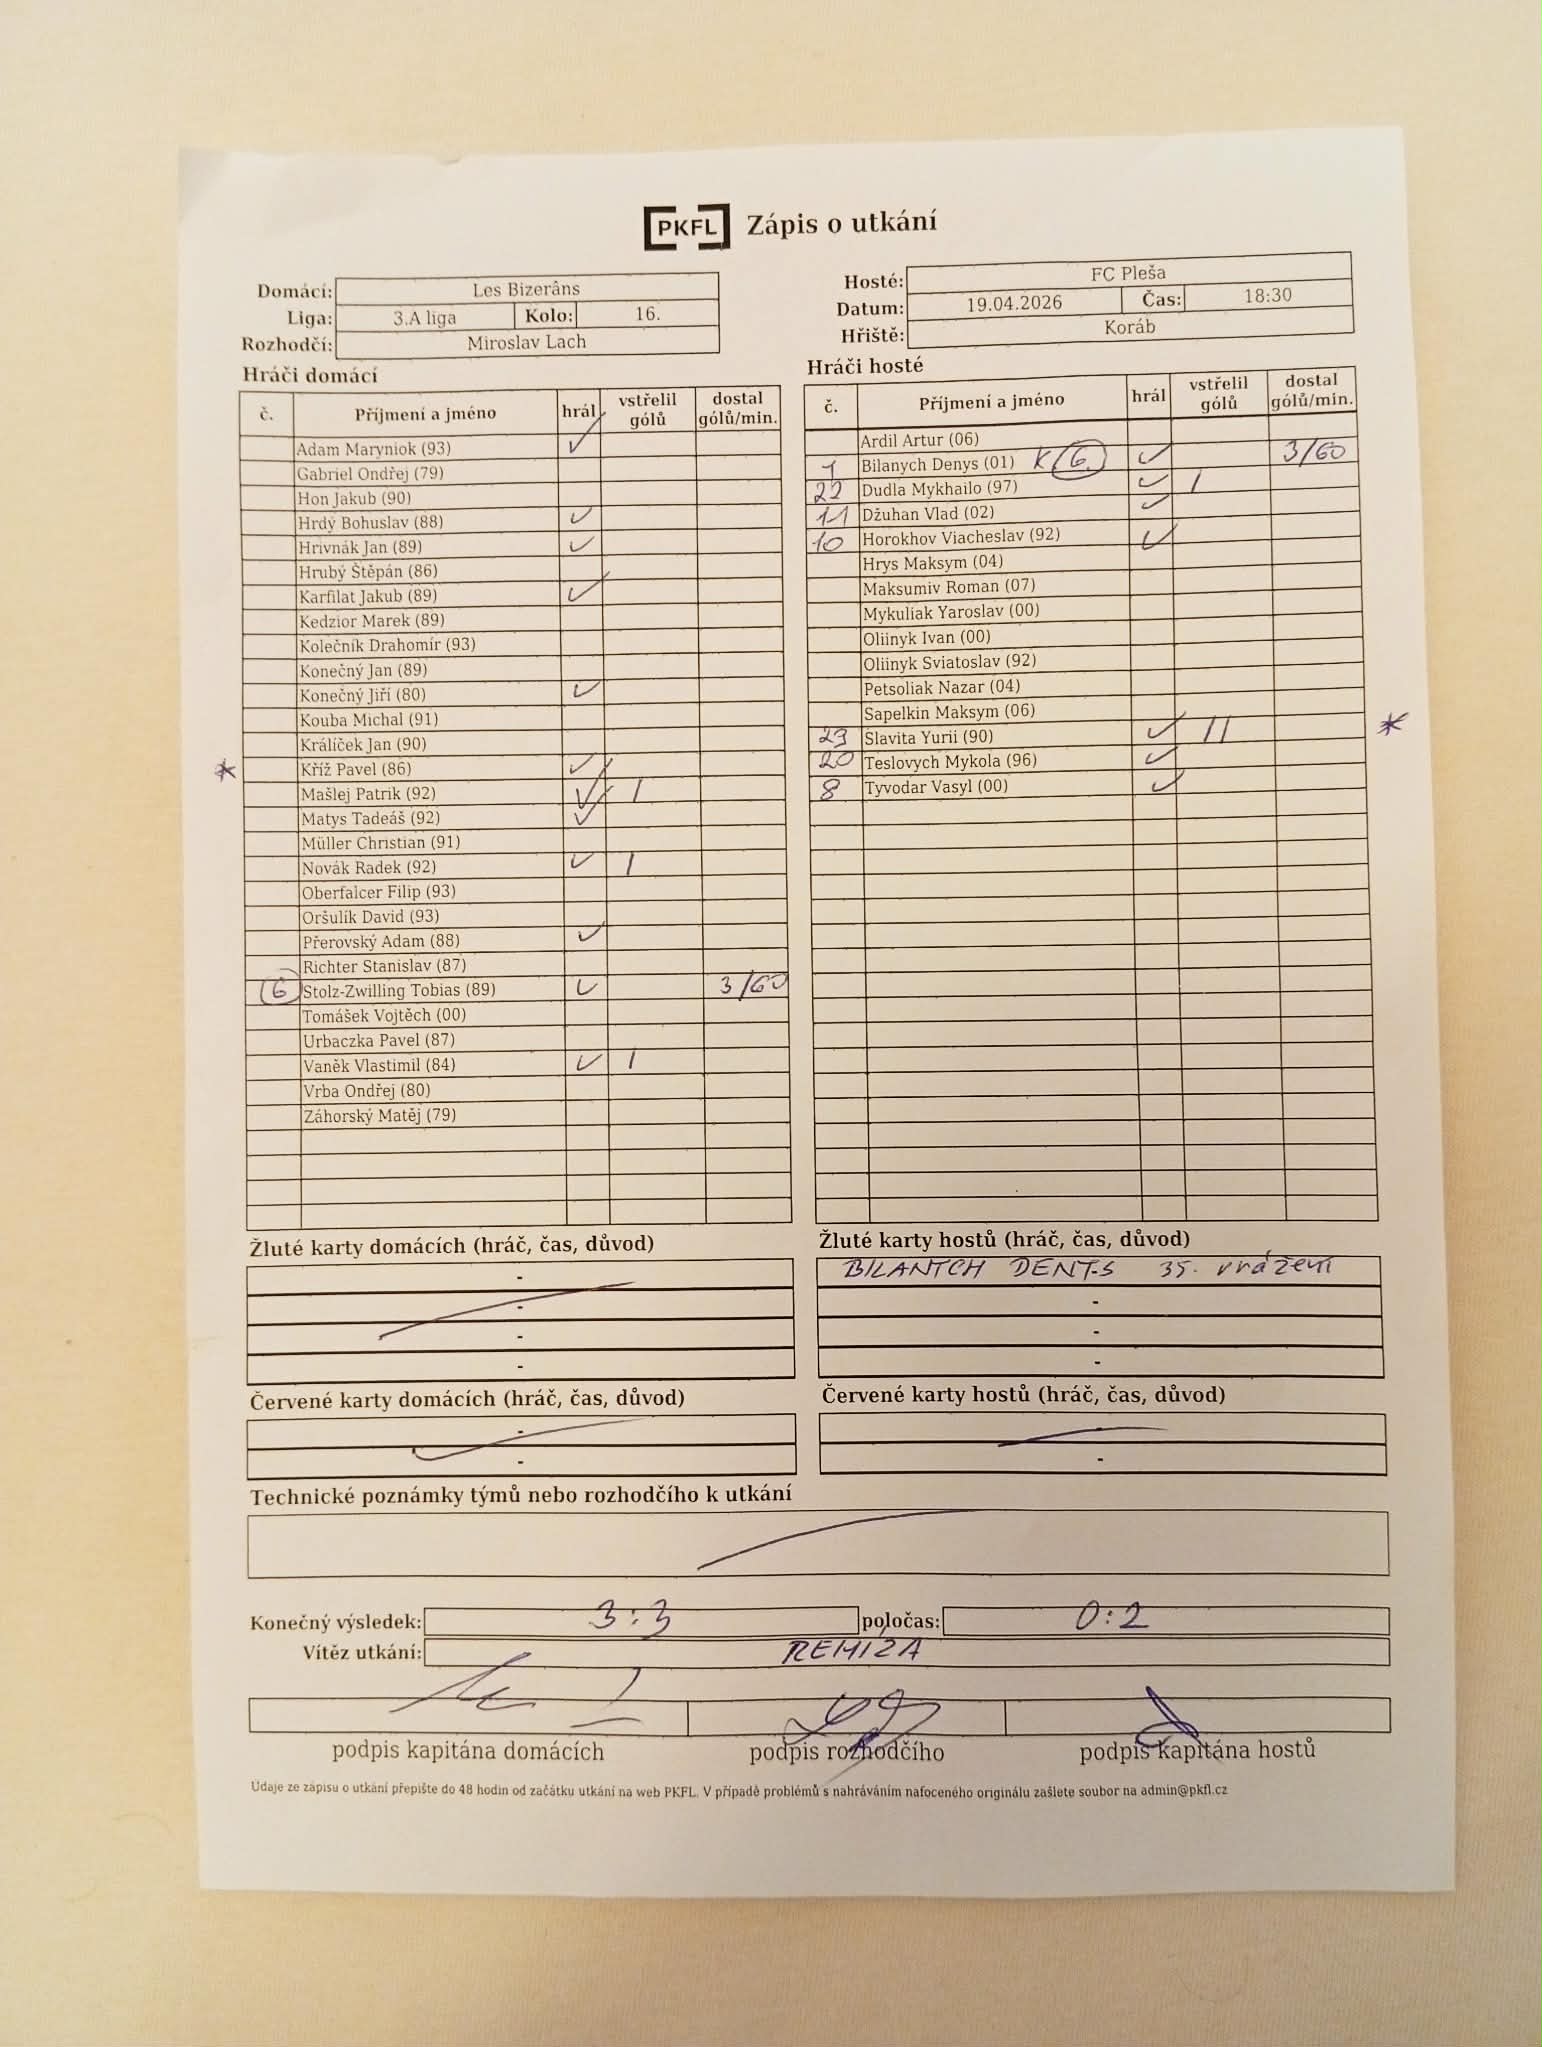 PKFL Zápis o utkání
Domácí: Les Bizerâns
Liga: 3.A liga Kolo: 16.
Rozhodčí: Miroslav Lach
Hosté: FC Pleša
Datum: 19.04.2026 Čas: 18:30
Hřiště: Koráb
Hráči domácí
č. Příjmení a jméno hrál vstřelil gólů dostal gólů/min.
Adam Maryniok (93) ✓
Gabriel Ondřej (79)
Hon Jakub (90)
Hrdý Bohuslav (88) ✓
Hrivnák Jan (89) ✓
Hrubý Štěpán (86)
Karfilat Jakub (89) ✓
Kedzior Marek (89)
Kolečník Drahomír (93)
Konečný Jan (89)
Konečný Jiří (80) ✓
Kouba Michal (91)
Králíček Jan (90)
* Kříž Pavel (86) ✓
Mašlej Patrik (92) ✓ I
Matys Tadeáš (92) ✓
Müller Christian (91)
Novák Radek (92) ✓ I
Oberfalcer Filip (93)
Oršulík David (93)
Přerovský Adam (88) ✓
Richter Stanislav (87)
G Stolz-Zwilling Tobias (89) ✓ 3/60
Tomášek Vojtěch (00)
Urbaczka Pavel (87)
Vaněk Vlastimil (84) ✓ I
Vrba Ondřej (80)
Záhorský Matěj (79)
Hráči hosté
č. Příjmení a jméno hrál vstřelil gólů dostal gólů/min.
Ardil Artur (06)
1 Bilanych Denys (01) K G. ✓ 3/60
22 Dudla Mykhailo (97) ✓ I
11 Džuhan Vlad (02) ✓
10 Horokhov Viacheslav (92) ✓
Hrys Maksym (04)
Maksumiv Roman (07)
Mykuliak Yaroslav (00)
Oliinyk Ivan (00)
Oliinyk Sviatoslav (92)
Petsoliak Nazar (04)
Sapelkin Maksym (06)
23 Slavita Yurii (90) ✓ II *
20 Teslovych Mykola (96) ✓
8 Tyvodar Vasyl (00) ✓
Žluté karty domácích (hráč, čas, důvod)
-
-
-
-
Žluté karty hostů (hráč, čas, důvod)
BILANYCH DENYS 35. vrážení
-
-
-
Červené karty domácích (hráč, čas, důvod)
-
-
Červené karty hostů (hráč, čas, důvod)
-
-
Technické poznámky týmů nebo rozhodčího k utkání
Konečný výsledek: 3:3 poločas: 0:2
Vítěz utkání: REMÍZA
podpis kapitána domácích podpis rozhodčího podpis kapitána hostů
Údaje ze zápisu o utkání přepište do 48 hodin od začátku utkání na web PKFL. V případě problémů s nahráváním nafoceného originálu zašlete soubor na admin@pkfl.cz